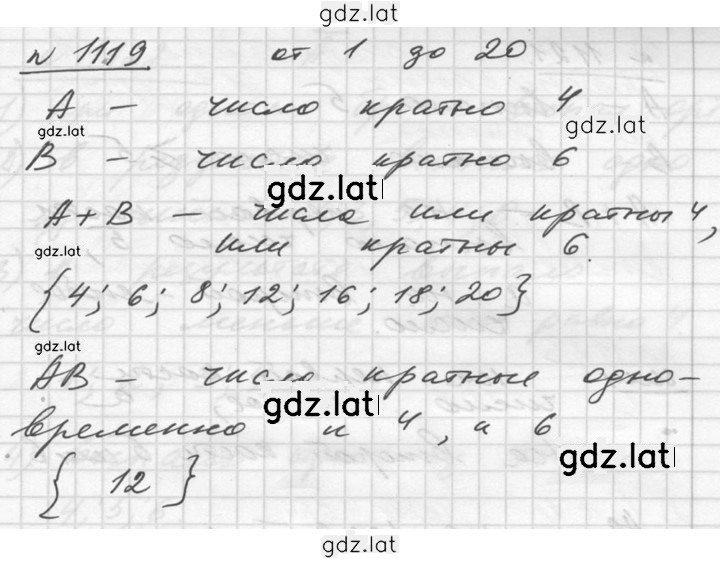 gdz.lat
№ 1119 от 1 до 20
A – число кратно 4
gdz.lat
gdz.lat
B – число кратно 6
gdz.lat
A + B – числа или кратны 4,
gdz.lat
или кратны 6.
{4; 6; 8; 12; 16; 18; 20}
gdz.lat
AB – число кратные одно-
gdz.lat
временно и 4, а 6
gdz.lat
{ 12 }
gdz.lat